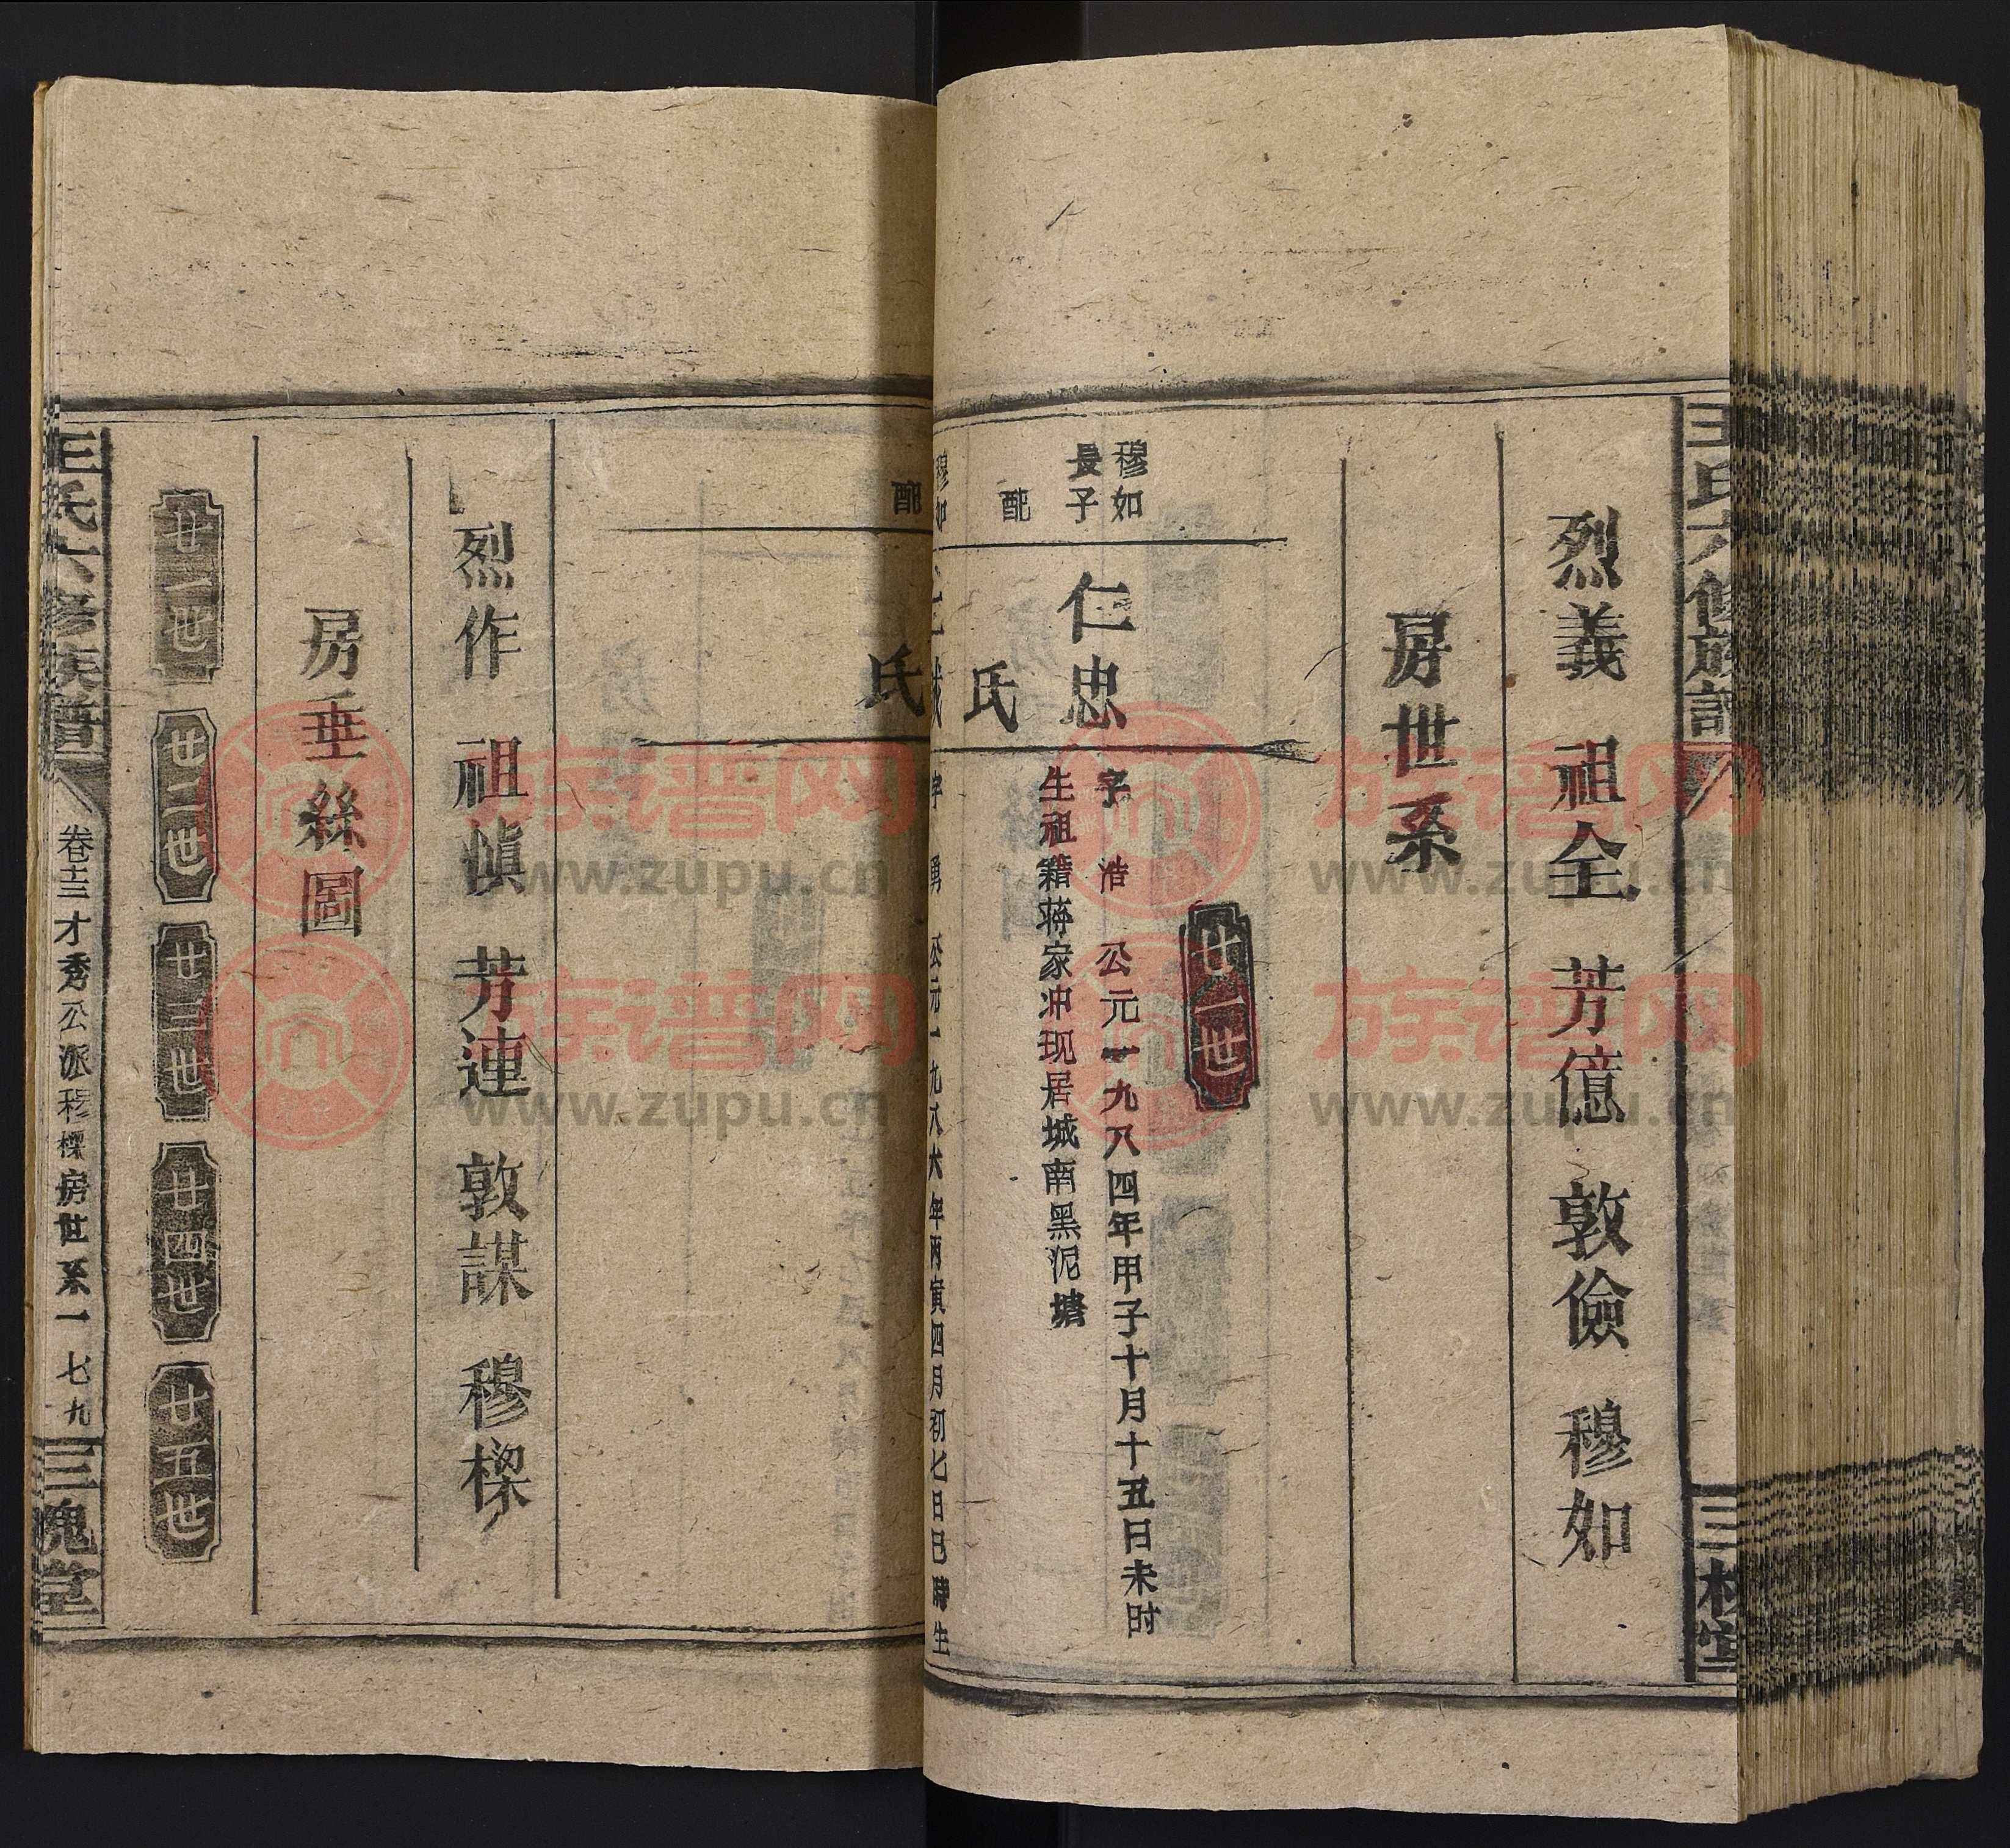 烈義 祖全 芳億 敦儉 穆如
房世系
廿一世
穆如
長子
仁忠
字 浩 公元一九八四年甲子十月十五日未时
生祖籍蒋家冲现居城南黑泥塘
配
氏
穆如
字 勇 公元一九八六年丙寅四月初七日巳時生
配
氏
烈作 祖慎 芳連 敦謀 穆樑
房垂絲圖
廿一世 廿二世 廿三世 廿四世 廿五世
王氏六修族譜 卷十三 才秀公派穆樑房世系 一七九 三槐堂
王氏六修族譜
三槐堂
族谱网
www.zupu.cn
族谱网
www.zupu.cn
族谱网
www.zupu.cn
族谱网
www.zupu.cn